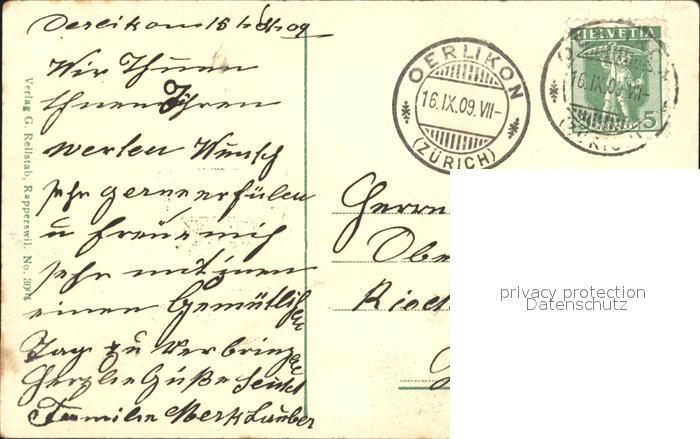 Oerlikon 15 ten 09
Wir Thuenn
Ihnen Ihren
werten Wunsch
sehr gerne erfülen
u freue mich
sehr mit inen
einen Gemütlichen
Tag zu verbringen
Herzlie Güße sendet
Familie Merk Lauber
Verlag G. Rellstab, Rapperswil. No.
OERLIKON
16.IX.09.VII-
(ZÜRICH)
HELVETIA
16.IX.09.VII-
5
Herrn
privacy protection
Datenschutz